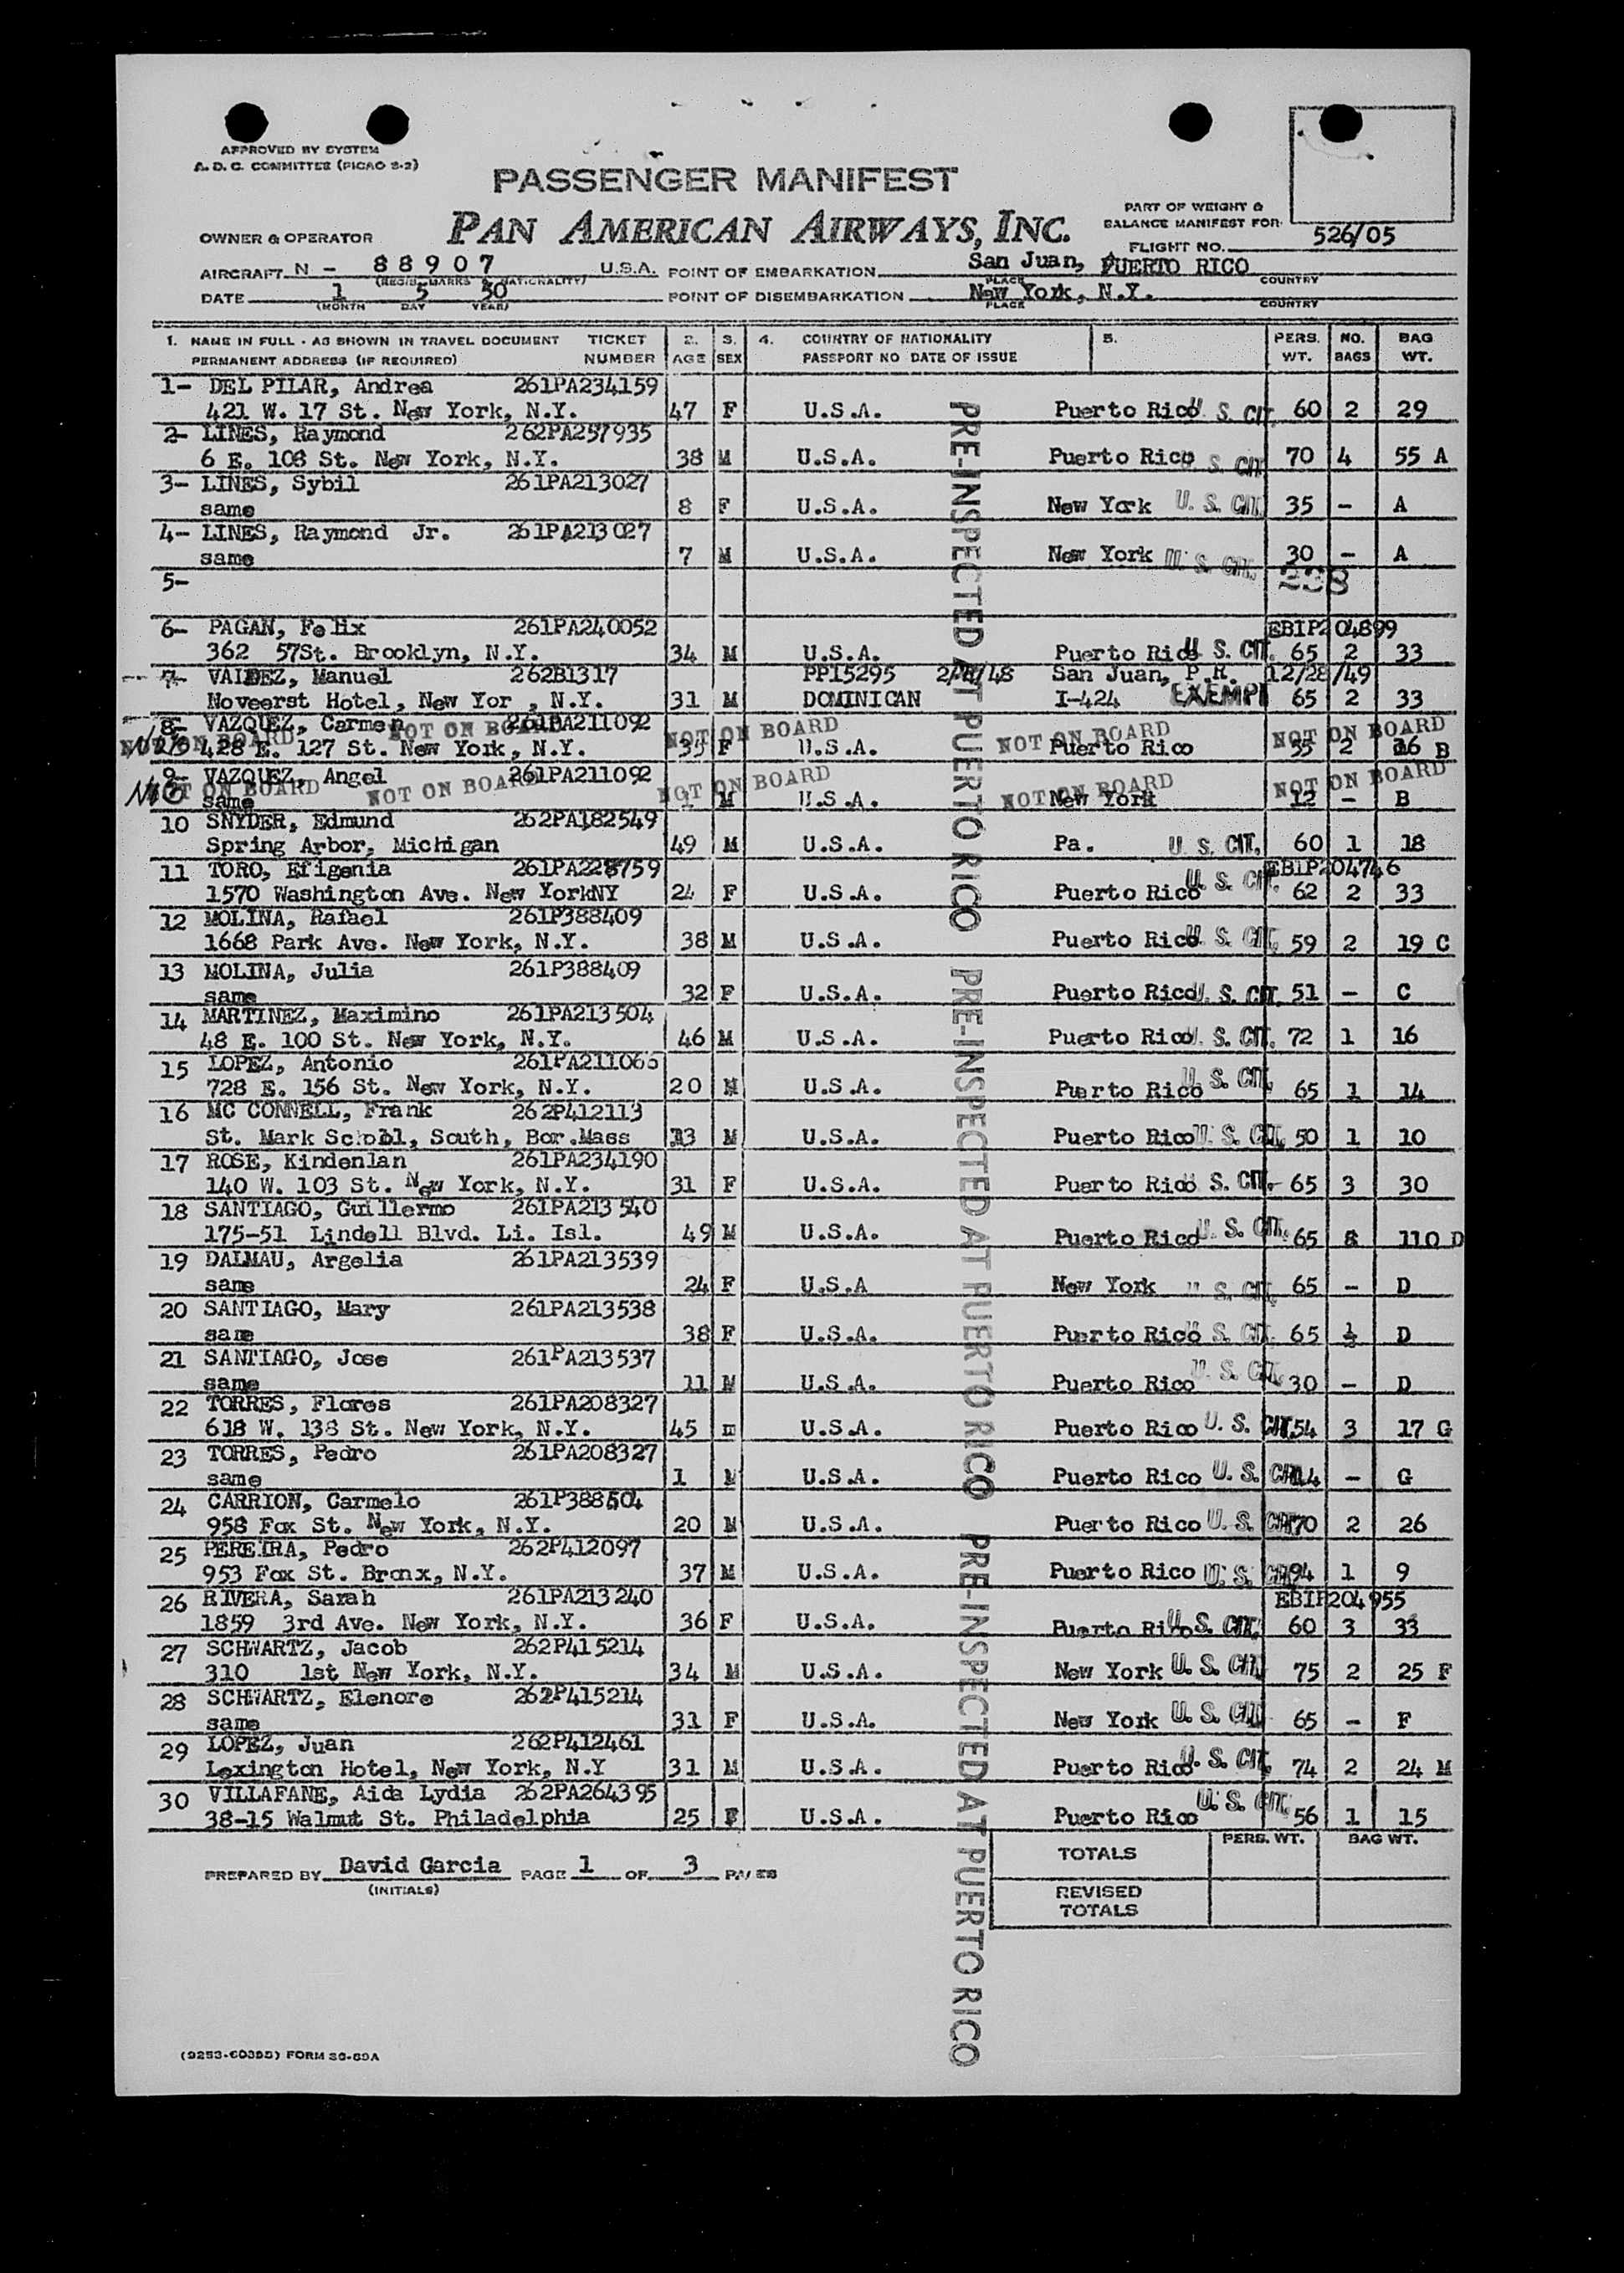 APPROVED BY SYSTEM
A. D. C. COMMITTEE (PICAO S-2)
PASSENGER MANIFEST
PAN AMERICAN AIRWAYS, INC.
PART OF WEIGHT &
BALANCE MANIFEST FOR
OWNER & OPERATOR
FLIGHT NO. 526/05
AIRCRAFT N - 88907 U.S.A. POINT OF EMBARKATION San Juan, PUERTO RICO
(REGIS. MARKS & NATIONALITY) PLACE COUNTRY
DATE 1 5 50 POINT OF DISEMBARKATION New York, N.Y.
(MONTH DAY YEAR) PLACE COUNTRY
1. NAME IN FULL - AS SHOWN IN TRAVEL DOCUMENT TICKET 2. 3. 4. COUNTRY OF NATIONALITY 5. PERS. NO. BAG
PERMANENT ADDRESS (IF REQUIRED) NUMBER AGE SEX PASSPORT NO DATE OF ISSUE WT. BAGS WT.
1- DEL PILAR, Andrea 261PA234159
421 W. 17 St. New York, N.Y. 47 F U.S.A. Puerto Rico U. S. CIT. 60 2 29
2- LINES, Raymond 262PA257935
6 E. 108 St. New York, N.Y. 38 M U.S.A. Puerto Rico U. S. CIT. 70 4 55 A
3- LINES, Sybil 261PA213027
same 8 F U.S.A. New York U. S. CIT. 35 - A
4- LINES, Raymond Jr. 261PA213027
same 7 M U.S.A. New York U. S. CIT. 30 - A
5- 238
6- PAGAN, Felix 261PA240052 EBIP204899
362 57St. Brooklyn, N.Y. 34 M U.S.A. Puerto Rico U. S. CIT. 65 2 33
7- VALDEZ, Manuel 262B1317 PP15295 San Juan, P.R. 12/28/49
Noveerst Hotel, New Yor , N.Y. 31 M DOMINICAN I-424 EXEMPT 65 2 33
8- VAZQUEZ, Carmen NOT ON BOARD 261PA211092 NOT ON BOARD NOT ON BOARD NOT ON BOARD
NOT ON BOARD 428 E. 127 St. New York, N.Y. 35 F U.S.A. Puerto Rico 55 2 B
9- VAZQUEZ, Angel 261PA211092 NOT ON BOARD NOT ON BOARD
NOT ON BOARD NOT ON BOARD NOT ON BOARD
same M U.S.A. New York 12 - B
10 SNYDER, Edmund 262PA182549
Spring Arbor, Michigan 49 M U.S.A. Pa. U. S. CIT. 60 1 18
11 TORO, Efigenia 261PA228759 EBIP204746
1570 Washington Ave. New YorkNY 24 F U.S.A. Puerto Rico U. S. CIT. 62 2 33
12 MOLINA, Rafael 261P388409
1668 Park Ave. New York, N.Y. 38 M U.S.A. Puerto Rico U. S. CIT. 59 2 19 C
13 MOLINA, Julia 261P388409
same 32 F U.S.A. Puerto Rico U. S. CIT. 51 - C
14 MARTINEZ, Maximino 261PA213504
48 E. 100 St. New York, N.Y. 46 M U.S.A. Puerto Rico U. S. CIT. 72 1 16
15 LOPEZ, Antonio 261PA211066
728 E. 156 St. New York, N.Y. 20 M U.S.A. Puerto Rico U. S. CIT. 65 1 14
16 MC CONNELL, Frank 262P412113
St. Mark School, South, Bor.Mass 13 M U.S.A. Puerto Rico U. S. CIT. 50 1 10
17 ROSE, Kindenlan 261PA234190
140 W. 103 St. New York, N.Y. 31 F U.S.A. Puerto Rico U. S. CIT. 65 3 30
18 SANTIAGO, Guillermo 261PA213540
175-51 Lindell Blvd. Li. Isl. 49 M U.S.A. Puerto Rico U. S. CIT. 65 8 110 D
19 DALMAU, Argelia 261PA213539
same 24 F U.S.A New York U. S. CIT. 65 - D
20 SANTIAGO, Mary 261PA213538
same 38 F U.S.A. Puerto Rico U. S. CIT. 65 D
21 SANTIAGO, Jose 261PA213537
same 11 M U.S.A. Puerto Rico U. S. CIT. 30 - D
22 TORRES, Flores 261PA208327
618 W. 138 St. New York, N.Y. 45 m U.S.A. Puerto Rico U. S. CIT. 54 3 17 G
23 TORRES, Pedro 261PA208327
same 1 M U.S.A. Puerto Rico U. S. CIT. 14 - G
24 CARRION, Carmelo 261P388504
958 Fox St. New York, N.Y. 20 M U.S.A. Puerto Rico U. S. CIT. 70 2 26
25 PEREIRA, Pedro 262P412097
953 Fox St. Bronx, N.Y. 37 M U.S.A. Puerto Rico U. S. CIT. 94 1 9
26 RIVERA, Sarah 261PA213240 EBIP204955
1859 3rd Ave. New York, N.Y. 36 F U.S.A. Puerto Rico U. S. CIT. 60 3 33
27 SCHWARTZ, Jacob 262P415214
310 1st New York, N.Y. 34 M U.S.A. New York U. S. CIT. 75 2 25 F
28 SCHWARTZ, Elenore 262P415214
same 31 F U.S.A. New York U. S. CIT. 65 - F
29 LOPEZ, Juan 262P412461
Lexington Hotel, New York, N.Y 31 M U.S.A. Puerto Rico U. S. CIT. 74 2 24 M
30 VILLAFANE, Aida Lydia 262PA264395
38-15 Walnut St. Philadelphia 25 F U.S.A. Puerto Rico U. S. CIT. 56 1 15
PRE-INSPECTED AT PUERTO RICO PRE-INSPECTED AT PUERTO RICO PRE-INSPECTED AT PUERTO RICO
PERS. WT. BAG WT.
TOTALS
PREPARED BY David Garcia PAGE 1 OF 3 PAGES
(INITIALS)
REVISED
TOTALS
FORM